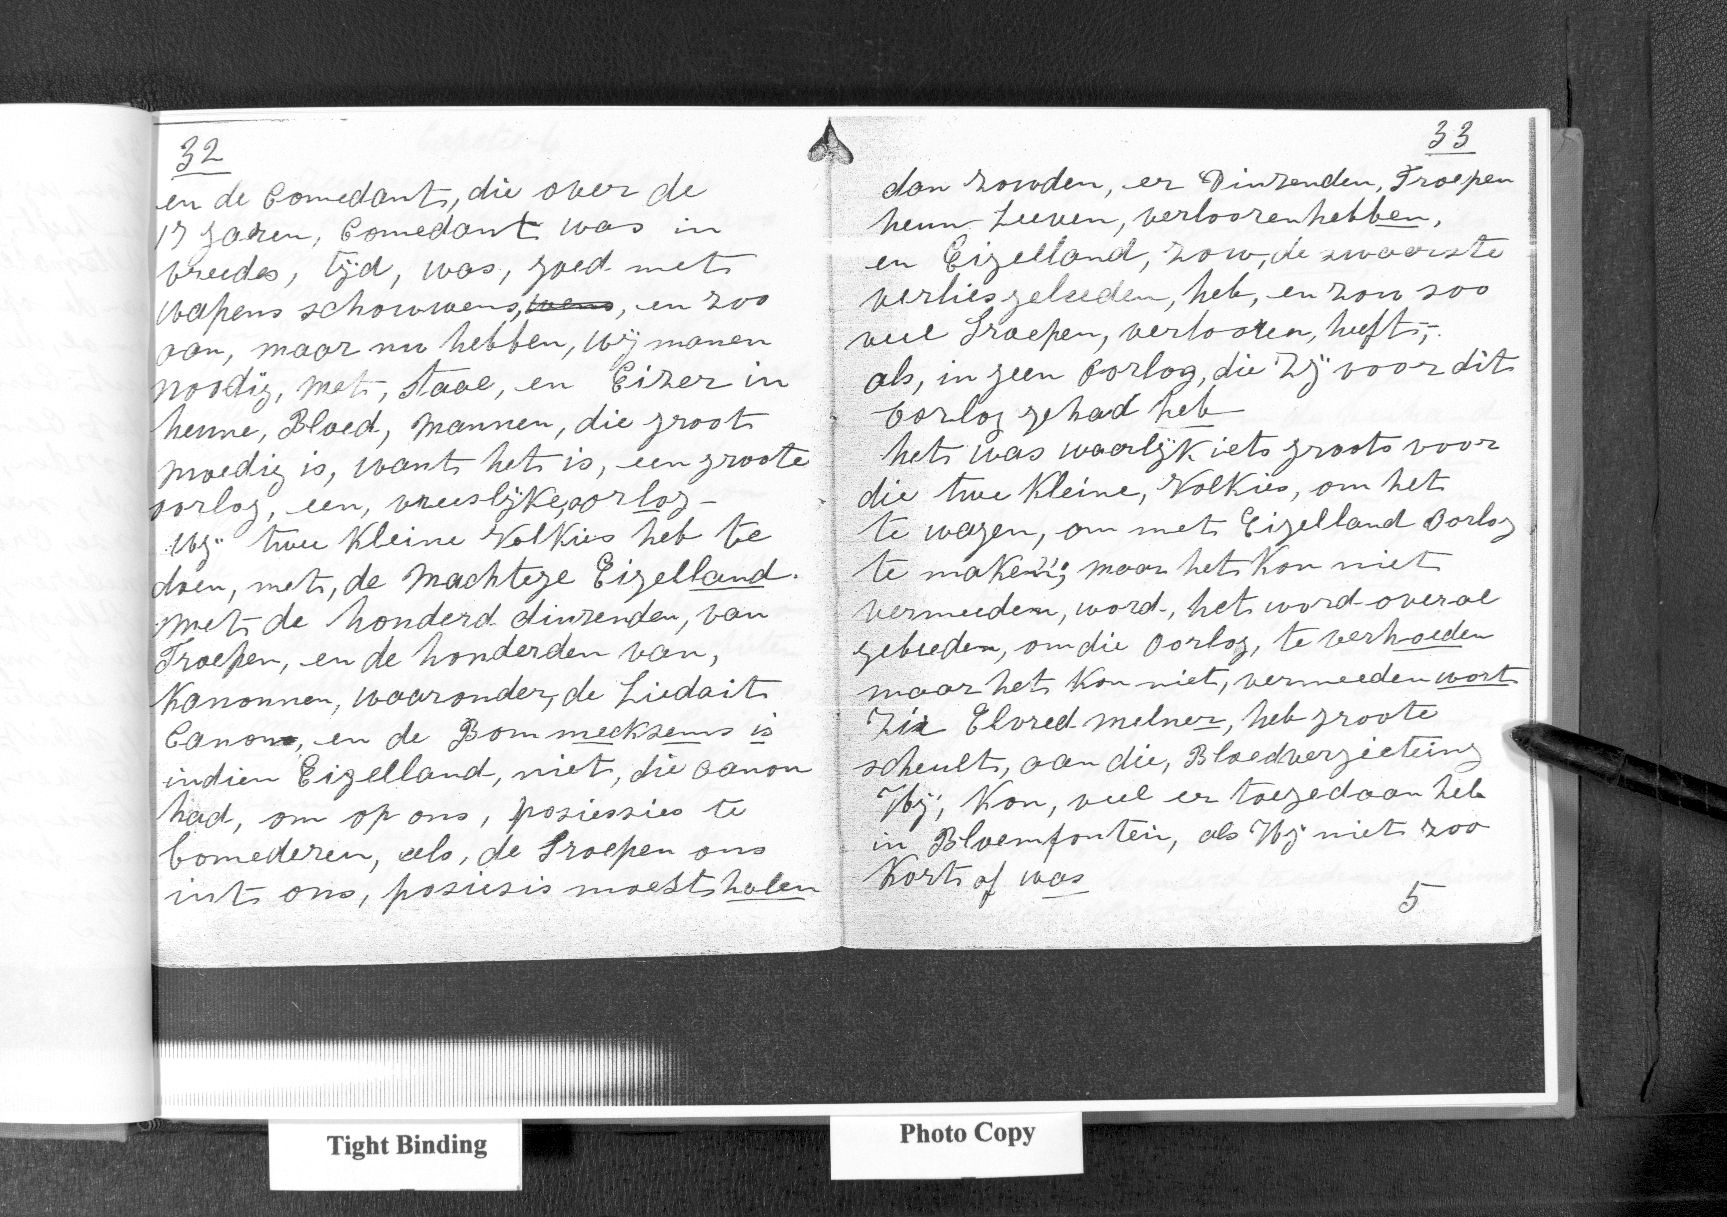 32
en de Comedant, die over de
17 Jaren, Comedant was in
vreedes, tijd, was, goed met
wapens schouwens, wens, en zoo
aan, maar nu hebben, wij manen
noodig, met, staal, en Eizer in
heune, Bloed, Mannen, die groot
moedig is, want het is, een groote
oorlog, een, vreeslijke, oorlog –
Wij twee kleine Volkies heb te
doen, met, de Machtege Eigelland.
met de honderd duizenden, van
Troepen, en de honderden van,
Kanonnen, waaronder, de Liedait
Canon, en de Bommecksems is
indien Eigelland, niet, die Canon
had, om op ons, posiessies te
bomederen, als, de Troepen ons
uit ons, posiesis moest halen
33
dan zouden, er Duizenden, Troepen
heun Leeven, verloorenhebben,
en Eigelland, zou, de swaarste
verlies geleeden, heb, en zou soo
veel Troepen, verlooren, heeft,
als, in geen Oorlog, die Zij voor dit
Oorlog gehad heb
het was waarlijk iets groots voor
die twee kleine, Volkies, om het
te wagen, om met Eigelland Oorlog
te maken, maar het kon niet
vermeeden, word, het word overal
gebieden, om die Oorlog, te verhoeden
maar het kon niet, vermeeden wort
Zir Elvred Melner, heb groote
scheult, aan die, Bloedvergieteing
Wij, kon, veel er toegedaan heb
in Bloemfontein, als Wij niet zoo
Kort af was
5
Tight Binding
Photo Copy